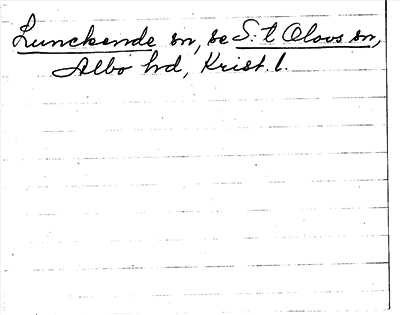 Lunckende sn, se S:t Olovs sn,
Albo hd, Krist. l.